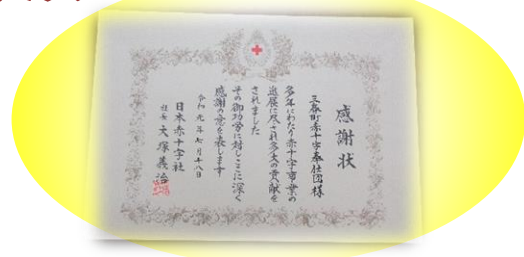 感謝状
三春町赤十字奉仕団様
多年にわたり赤十字事業の
進展に尽され多大の貢献を
されました
その御功労に対しここに深く
感謝の意を表します
令和元年七月十八日
日本赤十字社
社長 大塚義治